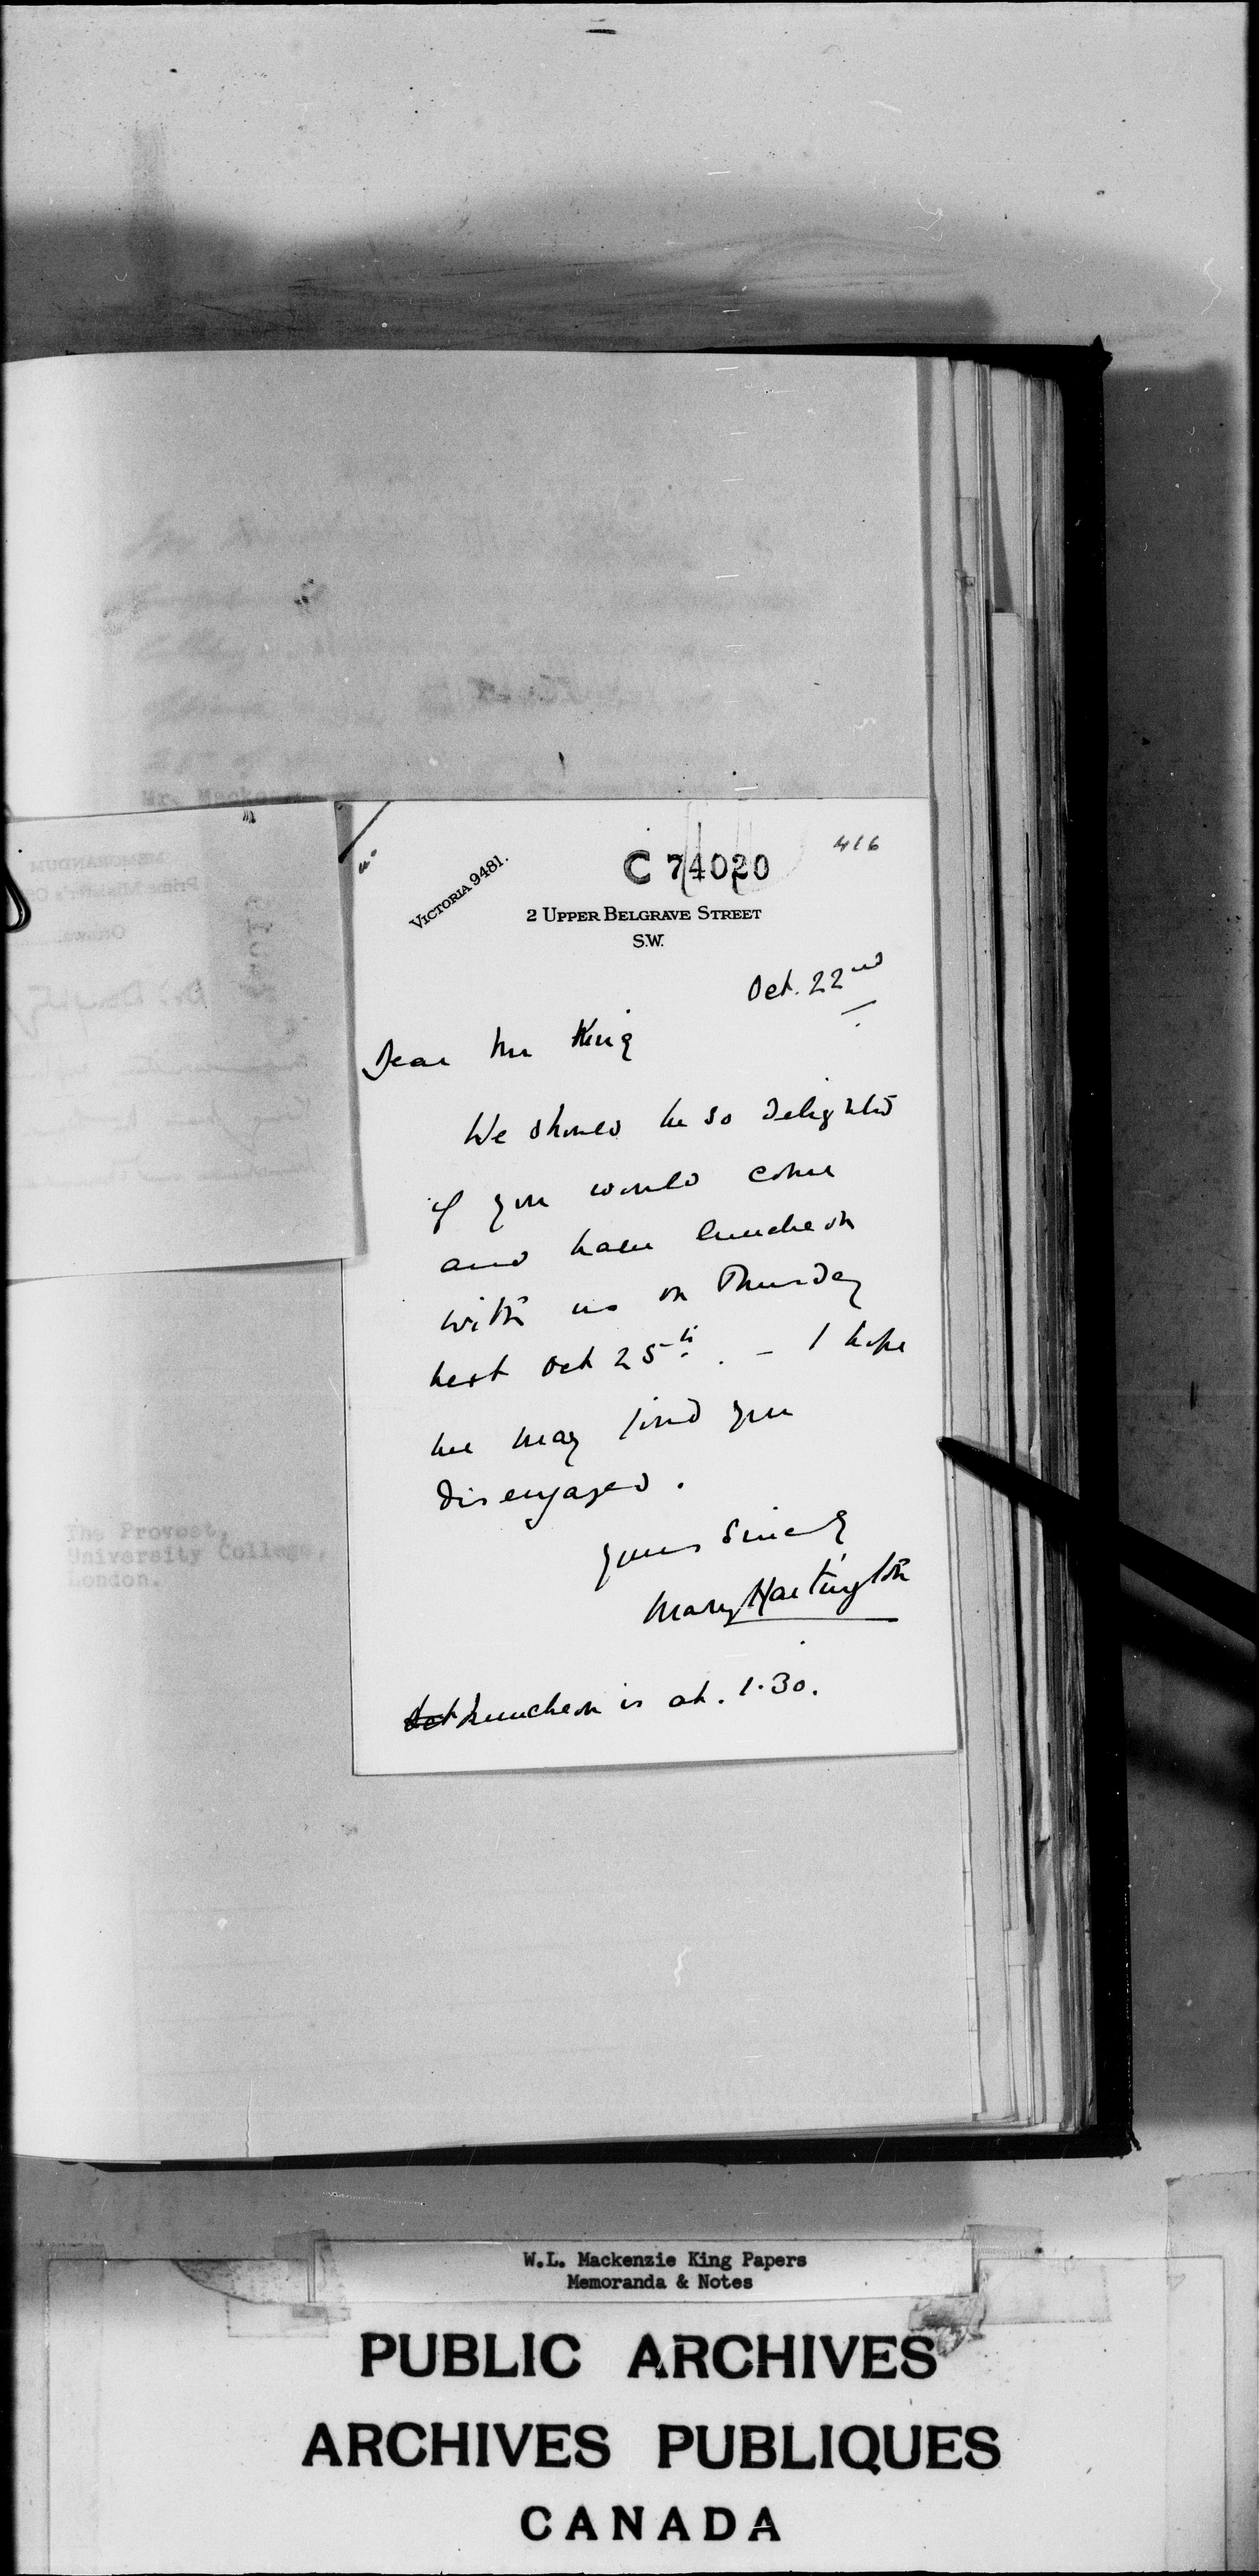 416
C 74020
VICTORIA 9481.
2 UPPER BELGRAVE STREET
S.W.
Oct. 22nd
Dear Mr King
We should be so delighted
if you would come
and have luncheon
with us on Thursday
next Oct 25th. – I hope
we may find you
disengaged.
Yours Sincerely
Mary Hartington
Luncheon is at. 1.30.
The Provost,
University College,
London.
W.L. Mackenzie King Papers
Memoranda & Notes
PUBLIC ARCHIVES
ARCHIVES PUBLIQUES
CANADA